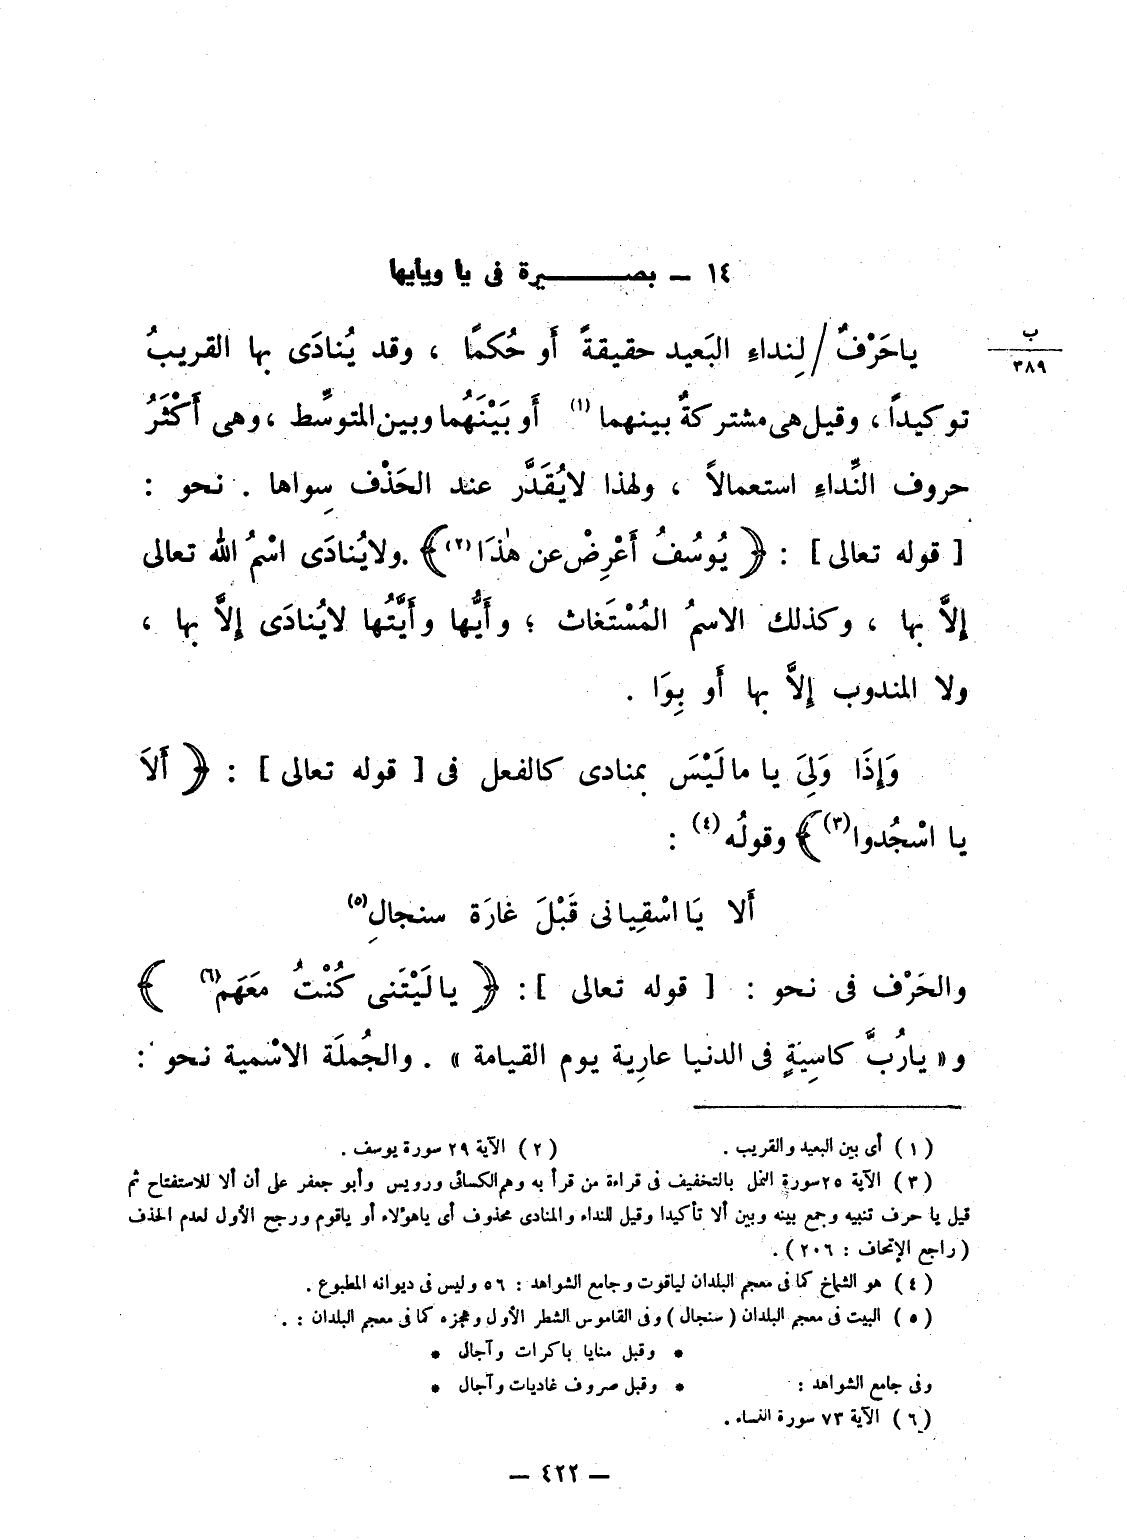 ١٤ – بصـــــــيرة فى يا ويأيها
ب
٣٨٩
ياحَرْفٌ / لِنداءِ البَعيد حقيقةً أَو حُكمًا ، وقد يُنادَى بها القريبُ
توكيداً ، وقيل هى مشتركةٌ بينهما (١) أَو بَيْنَهُما وبين المتوسِّط ، وهى أَكْثَرُ
حروف النِّداءِ استعمالاً ، ولهذا لايُقَدَّر عند الحَذْف سِواها . نحو :
[ قوله تعالى ] : ﴿ يُوسُفُ أَعْرِضْ عن هٰذَا (٢) ﴾ . ولايُنادَى اسْمُ الله تعالى
إِلاَّ بها ، وكذلك الاسمُ المُسْتَغاث ؛ وأَيُّها وأَيَّتُها لايُنادَى إِلاَّ بها ،
ولا المندوب إِلاَّ بها أَو بِوَا .
وَإِذَا وَلِىَ يا مالَيْسَ بمنادى كالفعل فى [ قوله تعالى ] : ﴿ أَلاَ
يا اسْجُدوا (٣) ﴾ وقولُه (٤) :
أَلا يَا اسْقِيانى قَبْلَ غارَة سنجالِ (٥)
والحَرْف فى نحو : [ قوله تعالى ] : ﴿ يالَيْتَنى كُنْتُ معَهَم (٦) ﴾
و « يارُبَّ كاسِيَةٍ فى الدنيا عارِية يوم القيامة » . والجُملَة الاسْمية نحو :
(١) أى بين البعيد والقريب . (٢) الآية ٢٩ سورة يوسف .
(٣) الآية ٢٥ سورة النمل بالتخفيف فى قراءة من قرأ به وهم الكسائى ورويس وأبو جعفر على أن ألا للاستفتاح ثم
قيل يا حرف تنبيه وجمع بينه وبين ألا تأكيدا وقيل للنداء والمنادى محذوف أى ياهؤلاء أو ياقوم ورجح الأول لعدم الحذف
( راجع الإتحاف : ٢٠٦ ) .
(٤) هو الشماخ كما فى معجم البلدان لياقوت وجامع الشواهد : ٥٦ وليس فى ديوانه المطبوع .
(٥) البيت فى معجم البلدان ( سنجال ) وفى القاموس الشطر الأول وعجزه كما فى معجم البلدان : .
* وقبل منايا باكرات وآجال *
وفى جامع الشواهد : * وقبل صروف غاديات وآجال *
(٦) الآية ٧٣ سورة النساء .
– ٤٢٢ –